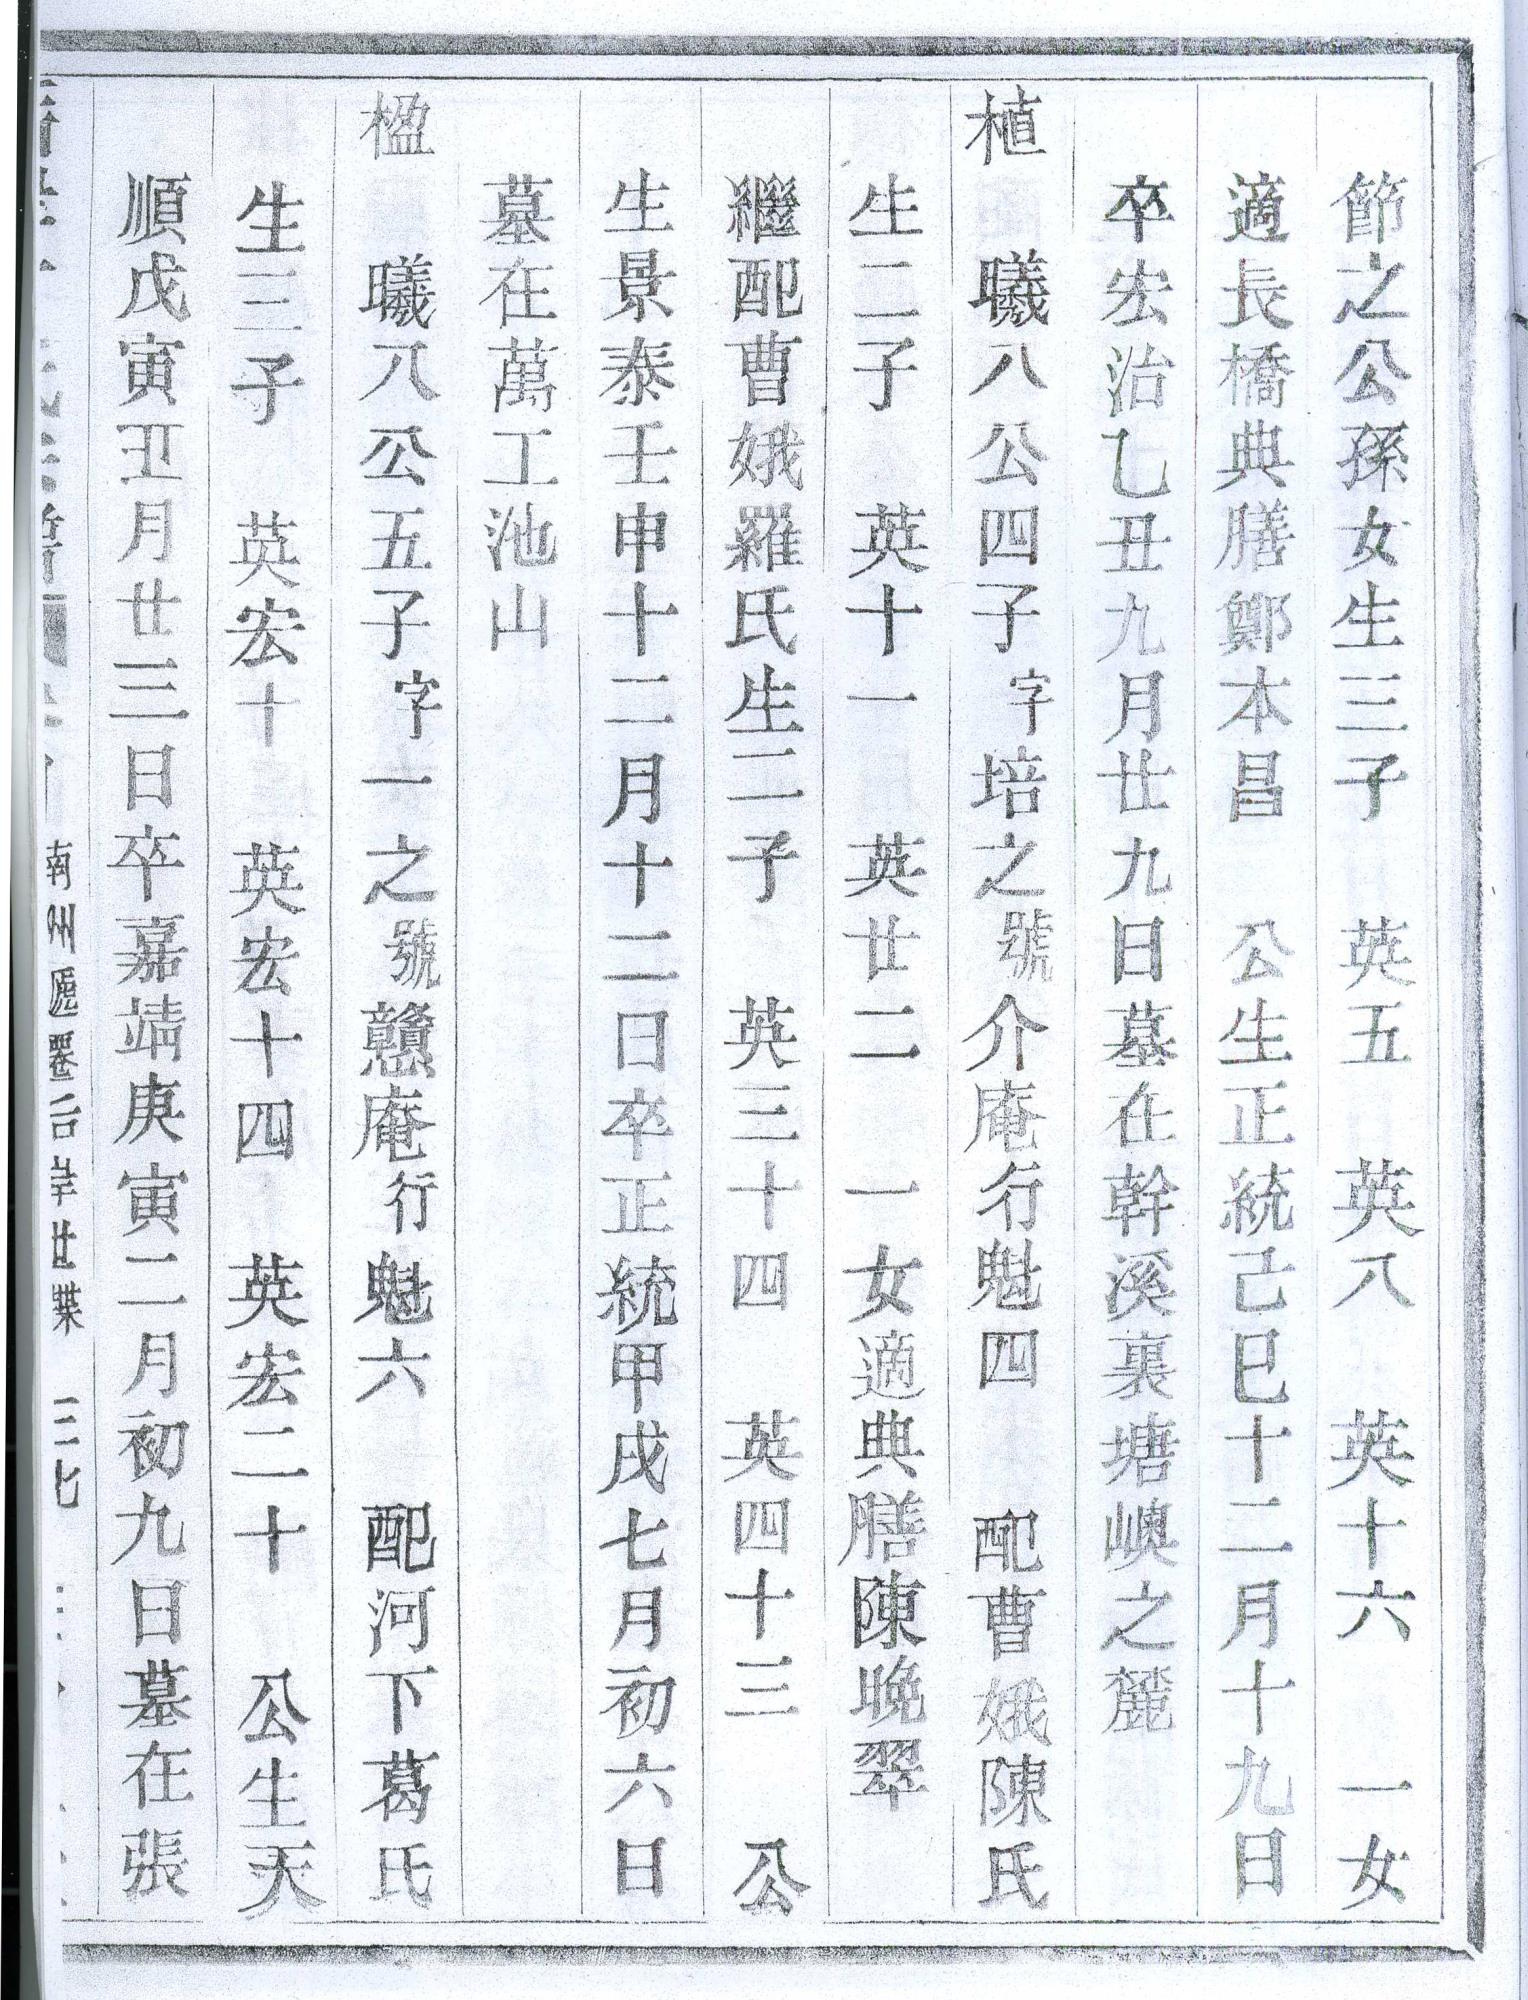 節之公孫女生三子　英五　英八　英十六　一女
適長橋典膳鄭本昌　公生正統己巳十二月十九日
卒宏治乙丑九月廿九日墓在幹溪裏塘嶼之麓
植　曦八公四子字培之號介庵行魁四　配曹娥陳氏
生二子　英十一　英廿二　一女適典膳陳晚翠
繼配曹娥羅氏生二子　英三十四　英四十三　公
生景泰壬申十二月十二日卒正統甲戌七月初六日
墓在萬工池山
楹　曦八公五子字一之號戇庵行魁六　配河下葛氏
生三子　英宏十　英宏十四　英宏二十　公生天
順戊寅丑月廿三日卒嘉靖庚寅二月初九日墓在張
南州 世 三七